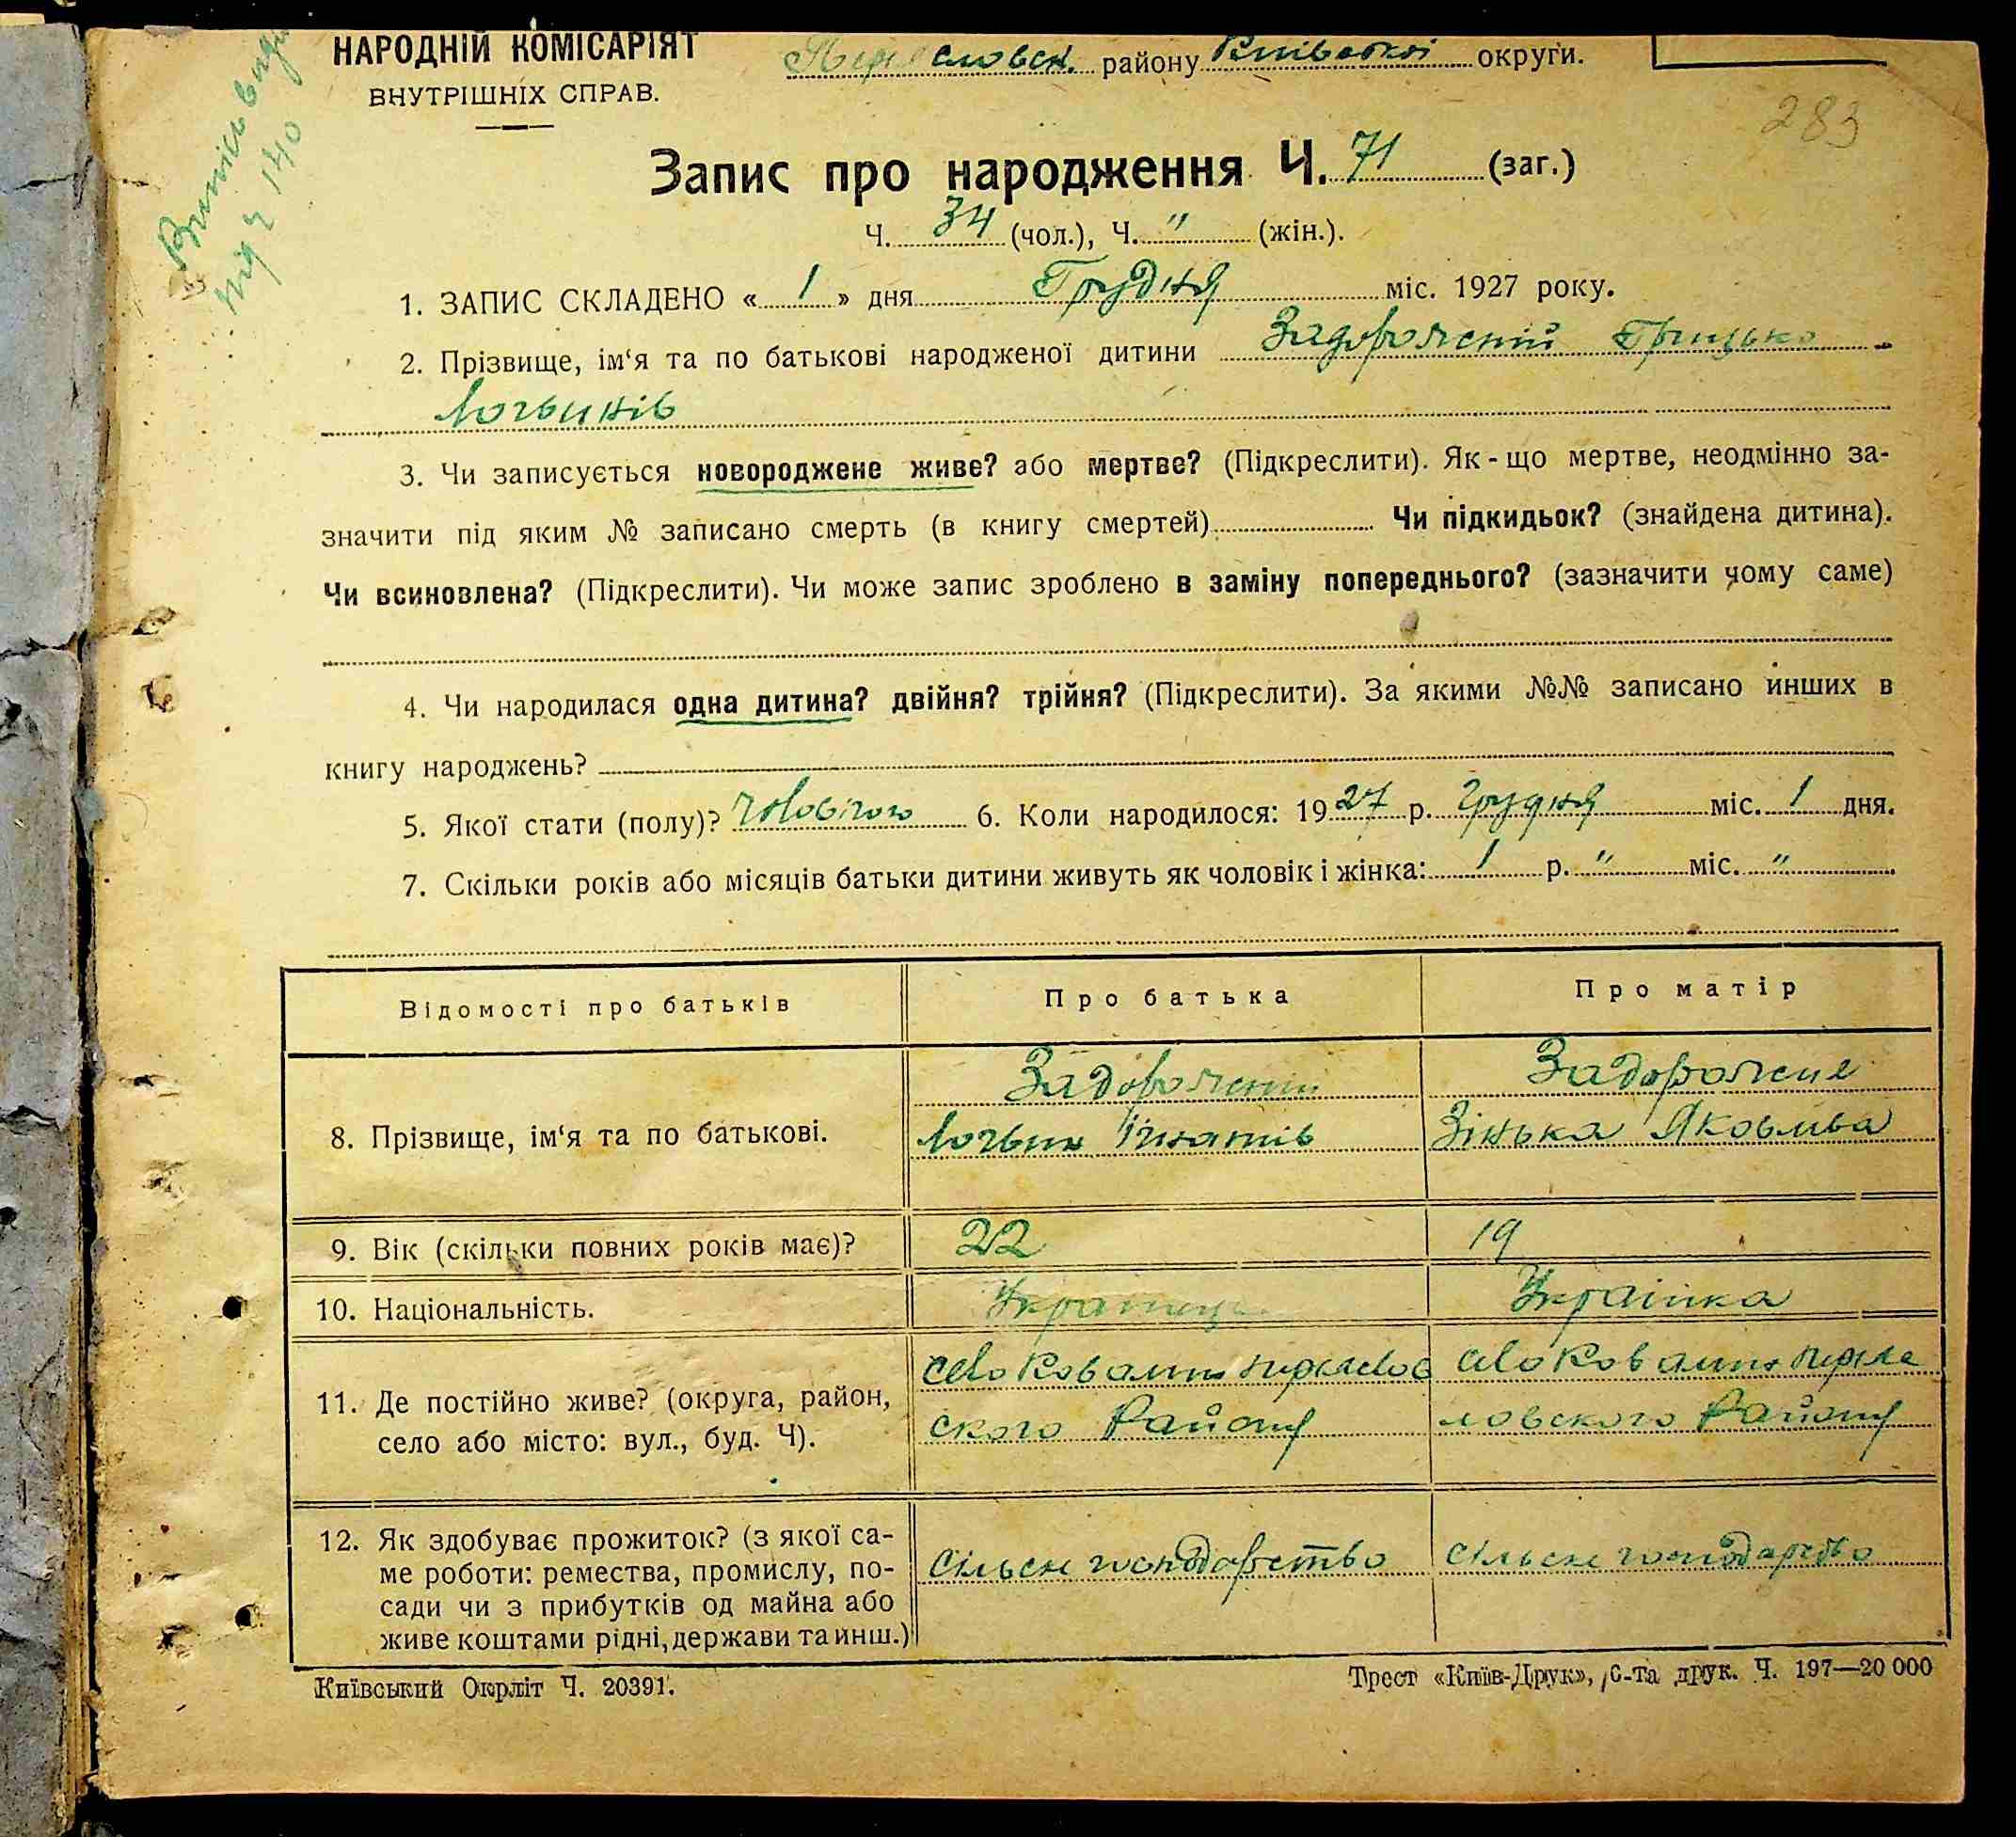 НАРОДНІЙ КОМІСАРІЯТ
ВНУТРІШНІХ СПРАВ.
словск. району Київської округи.
283
Випись
під ч 140
Запис про народження Ч. 71 (заг.)
Ч. 34 (чол.), Ч. " (жін.).
1. ЗАПИС СКЛАДЕНО « 1 » дня Грудня міс. 1927 року.
2. Прізвище, ім‘я та по батькові народженої дитини Задорожний Грицько
Логвинів
3. Чи записується новороджене живе? або мертве? (Підкреслити). Як-що мертве, неодмінно за-
значити під яким № записано смерть (в книгу смертей) Чи підкидьок? (знайдена дитина).
Чи всиновлена? (Підкреслити). Чи може запис зроблено в заміну попереднього? (зазначити чому саме)
4. Чи народилася одна дитина? двійня? трійня? (Підкреслити). За якими №№ записано инших в
книгу народжень?
5. Якої стати (полу)? 6. Коли народилося: 1927 р. Грудня міс. 1 дня.
7. Скільки років або місяців батьки дитини живуть як чоловік і жінка: 1 р. " міс. "
Відомості про батьків Про батька Про матір
8. Прізвище, ім‘я та по батькові. Задорожний Логвин Ігнатів Задорожне Зінька Яковлва
9. Вік (скільки повних років має)? 22 19
10. Національність. Українець Українка
11. Де постійно живе? (округа, район,
село або місто: вул., буд. Ч).
село Ковалин переслов
ского Району
село Ковалин пере
словского Району
12. Як здобуває прожиток? (з якої са-
ме роботи: ремества, промислу, по-
сади чи з прибутків од майна або
живе коштами рідні, держави та инш.)
сільське господарство сільське господарство
Київський Окрліт Ч. 20391.
Трест «Київ-Друк», 6-та друк. Ч. 197—20 000